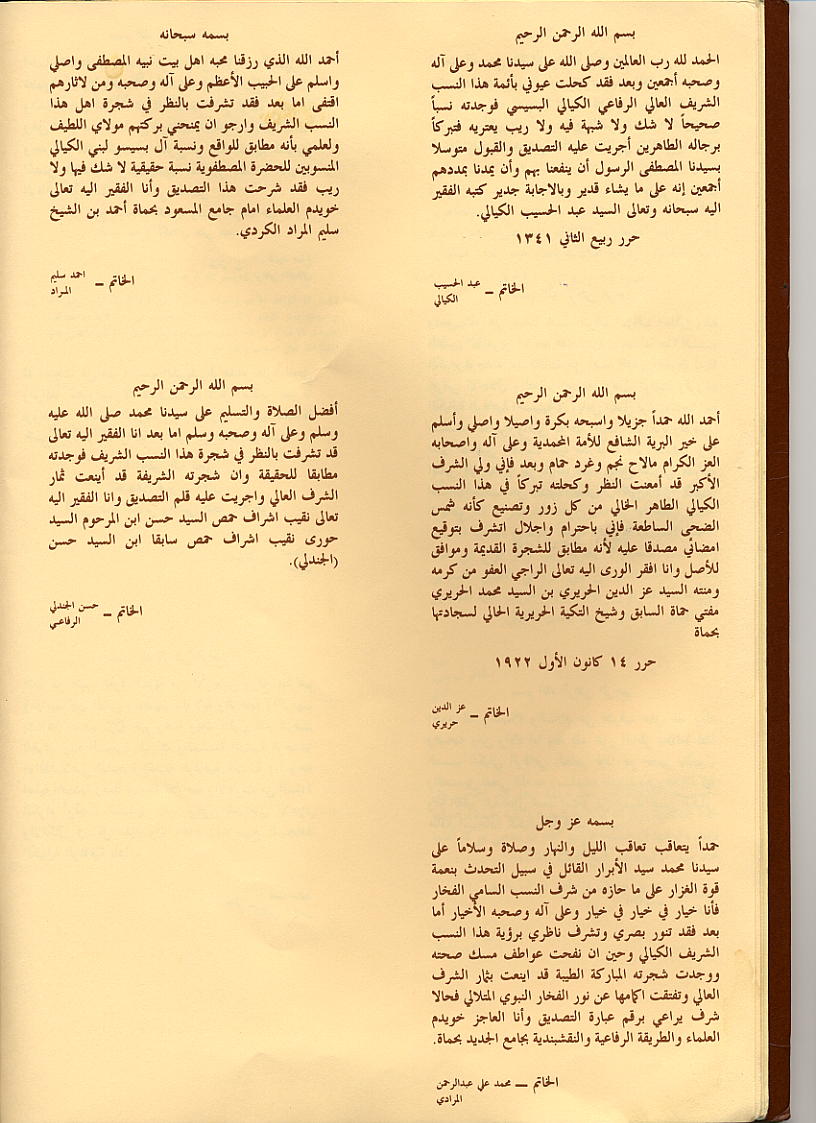 بسم الله الرحمن الرحيم
الحمد لله رب العالمين وصلى الله على سيدنا محمد وعلى آله
وصحبه أجمعين وبعد فقد كحلت عيوني بأئمة هذا النسب
الشريف العالي الرفاعي الكيالي البسيسي فوجدته نسباً
صحيحاً لا شك ولا شبهة فيه ولا ريب يعتريه فتبركاً
برجاله الطاهرين أجريت عليه التصديق والقبول متوسلا
بسيدنا المصطفى الرسول أن ينفعنا بهم وأن يمدنا بمددهم
أجمعين إنه على ما يشاء قدير وبالاجابة جدير كتبه الفقير
اليه سبحانه وتعالى السيد عبد الحسيب الكيالي.
حرر ربيع الثاني ١٣٤١
الخاتم – عبد الحسيب
الكيالي
بسم الله الرحمن الرحيم
أحمد الله حمداً جزيلا واسبحه بكرة واصيلا واصلي وأسلم
على خير البرية الشافع للأمة المحمدية وعلى آله واصحابه
العز الكرام مالاح نجم وغرد حمام وبعد فإني ولي الشرف
الأكبر قد أمعنت النظر وكحلته تبركاً في هذا النسب
الكيالي الطاهر الخالي من كل زور وتصنيع كأنه شمس
الضحى الساطعة فإني باحترام واجلال اتشرف بتوقيع
امضائي مصدقا عليه لأنه مطابق للشجرة القديمة وموافق
للأصل وانا افقر الورى اليه تعالى الراجي العفو من كرمه
ومنته السيد عز الدين الحريري بن السيد محمد الحريري
مفتي حماة السابق وشيخ التكية الحريرية الحالي لسجادتها
بحماة
حرر ١٤ كانون الأول ١٩٢٢
الخاتم – عز الدين
حريري
بسمه عز وجل
حمداً يتعاقب تعاقب الليل والنهار وصلاة وسلاماً على
سيدنا محمد سيد الأبرار القائل في سبيل التحدث بنعمة
قوة الغزار على ما حازه من شرف النسب السامي الفخار
فأنا خيار في خيار في خيار وعلى آله وصحبه الأخيار أما
بعد فقد تنور بصري وتشرف ناظري برؤية هذا النسب
الشريف الكيالي وحين ان نفحت عواطف مسك صحته
ووجدت شجرته المباركة الطيبة قد اينعت بثمار الشرف
العالي وتفتقت اكمامها عن نور الفخار النبوي المتلالي فحالا
شرف يراعي برقم عبارة التصديق وأنا العاجز خويدم
العلماء والطريقة الرفاعية والنقشبندية بجامع الجديد بحماة.
الخاتم – محمد علي عبدالرحمن
المرادي
بسمه سبحانه
أحمد الله الذي رزقنا محبه اهل بيت نبيه المصطفى واصلي
واسلم على الحبيب الأعظم وعلى آله وصحبه ومن لاثارهم
اقتفى اما بعد فقد تشرفت بالنظر في شجرة اهل هذا
النسب الشريف وارجو ان يمنحني بركتهم مولاي اللطيف
ولعلمي بأنه مطابق للواقع ونسبة آل بسيسو لبني الكيالي
المنسوبين للحضرة المصطفوية نسبة حقيقية لا شك فيها ولا
ريب فقد شرحت هذا التصديق وأنا الفقير اليه تعالى
خويدم العلماء امام جامع المسعود بحماة أحمد بن الشيخ
سليم المراد الكردي.
الخاتم – احمد سليم
المراد
بسم الله الرحمن الرحيم
أفضل الصلاة والتسليم على سيدنا محمد صلى الله عليه
وسلم وعلى آله وصحبه وسلم اما بعد انا الفقير اليه تعالى
قد تشرفت بالنظر في شجرة هذا النسب الشريف فوجدته
مطابقا للحقيقة وان شجرته الشريفة قد أينعت ثمار
الشرف العالي واجريت عليه قلم التصديق وانا الفقير اليه
تعالى نقيب اشراف حمص السيد حسن ابن المرحوم السيد
حورى نقيب اشراف حمص سابقا ابن السيد حسن
(الجندلي).
الخاتم – حسن الجندلي
الرفاعي